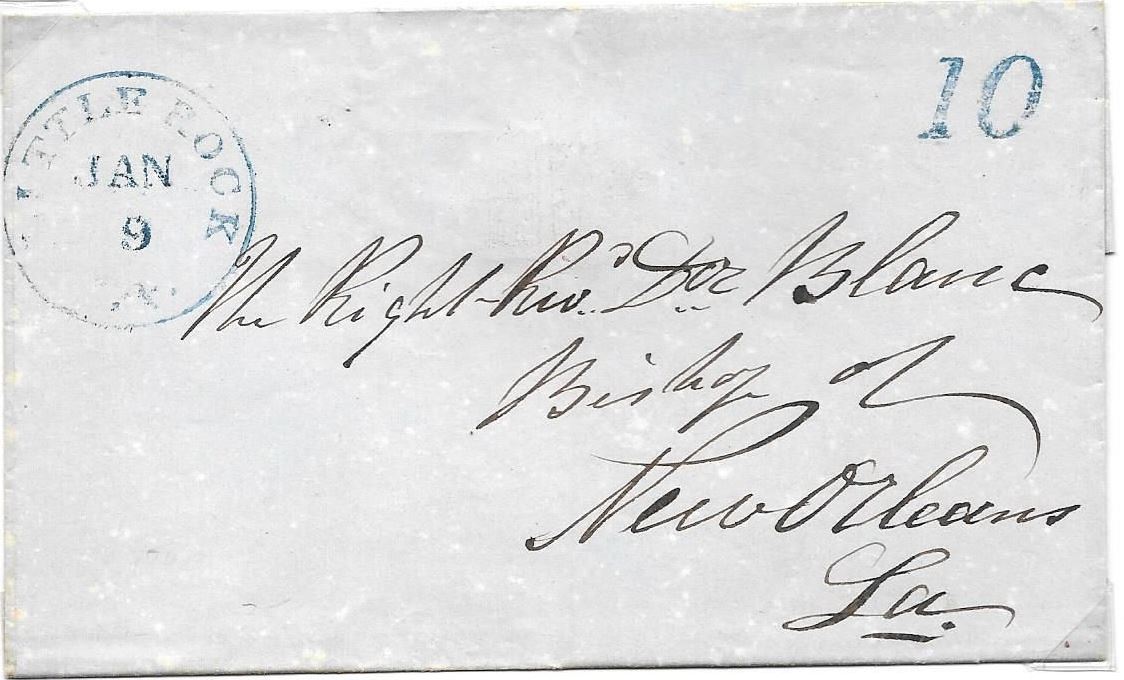 LITTLE ROCK
JAN
9
10
The Right Rev.d Dor Blanc
Bishop of
New Orleans
La.